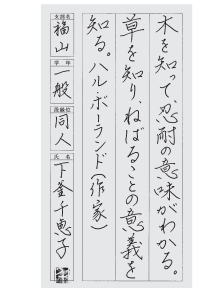 木を知って、忍耐の意味がわかる。
草を知り、ねばることの意義を
知る。ハル・ボーランド(作家)
支部名
福山
学年
一般
段級位
同人
氏名
下釜千恵子